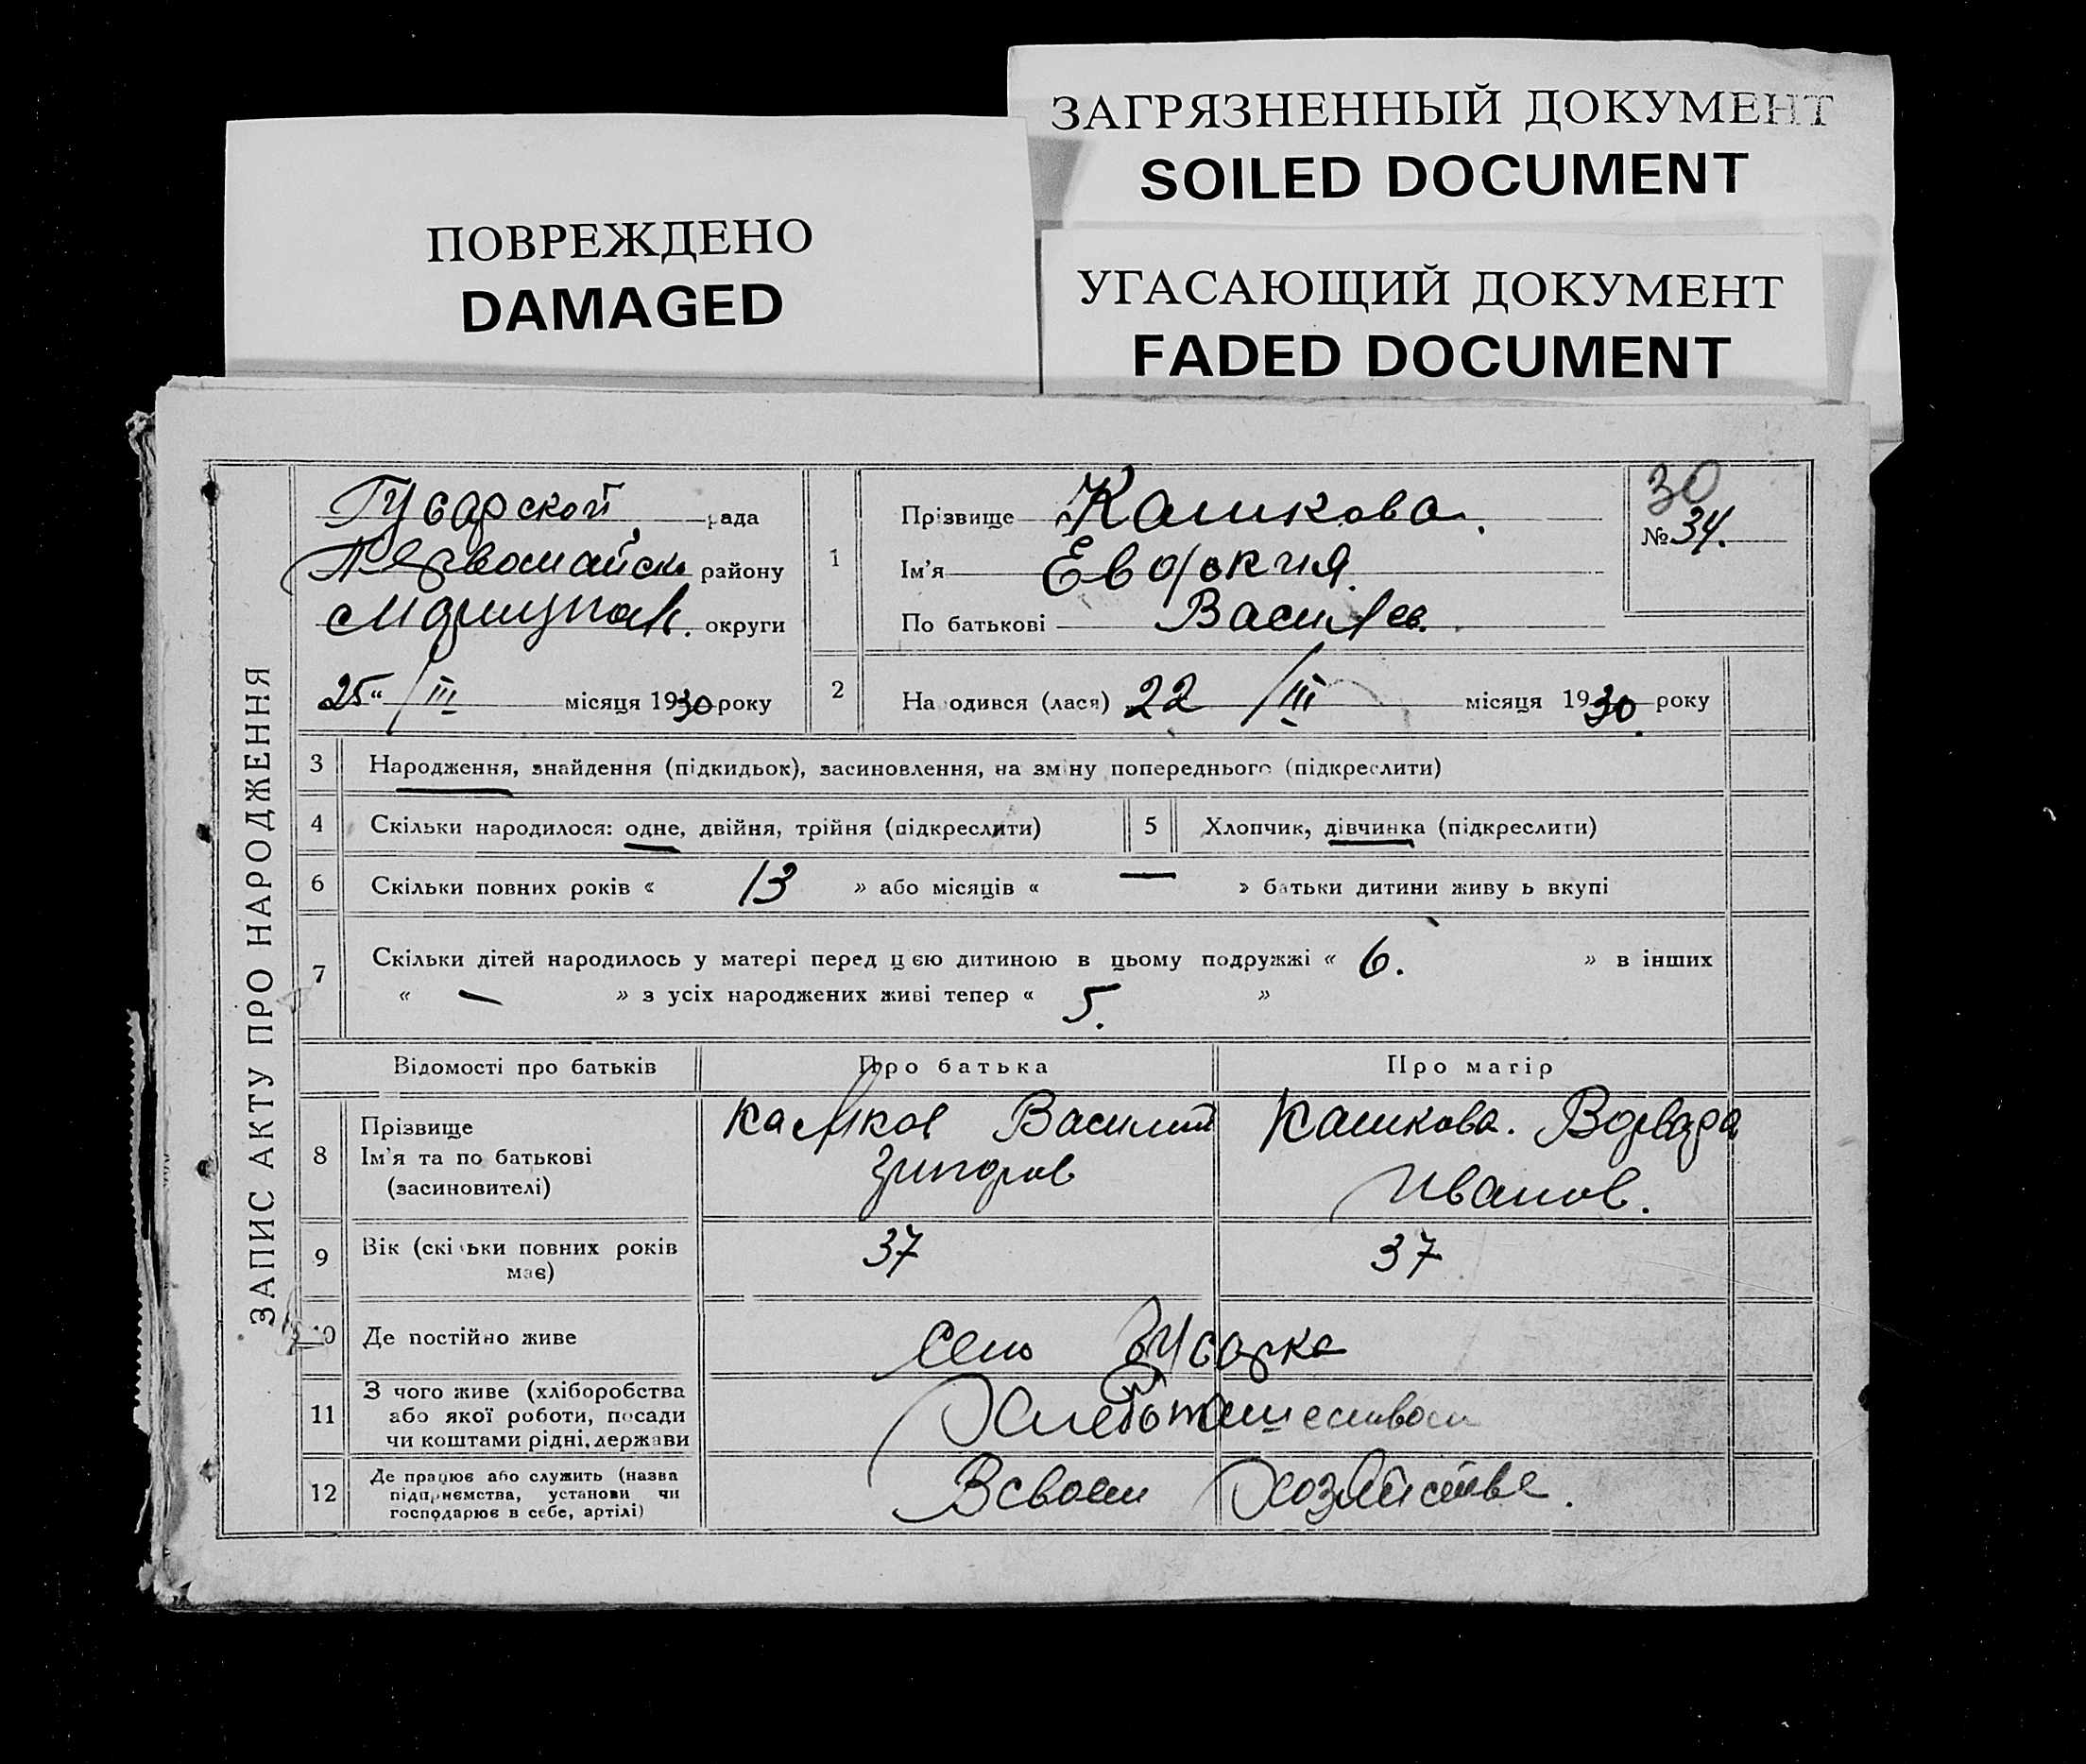 ЗАГРЯЗНЕННЫЙ ДОКУМЕНТ
SOILED DOCUMENT
ПОВРЕЖДЕНО
DAMAGED
УГАСАЮЩИЙ ДОКУМЕНТ
FADED DOCUMENT
ЗАПИС АКТУ ПРО НАРОДЖЕННЯ
Гусарской рада
Первомайск району
Мариупол. округи
25" / III місяця 1930 року
30
№ 34.
1
Прізвище Кашкова.
Ім'я Евдокия.
По батькові Василев.
2 На одився (лася) 22 / III місяця 1930 року
3 Народження, знайдення (підкидьок), засиновлення, на зміну попереднього (підкреслити)
4 Скільки народилося: одне, двійня, трійня (підкреслити)
5 Хлопчик, дівчинка (підкреслити)
6 Скільки повних років « 13 » або місяців « — » батьки дитини живу ь вкупі
7 Скільки дітей народилось у матері перед цею дитиною в цьому подружжі « 6. » в інших
« — » з усіх народжених живі тепер « 5. »
Відомості про батьків Про батька Про матір
8 Прізвище
Ім'я та по батькові
(засиновителі)
Кашков Василий
Григоров
Кашкова. Варвара
Иванов.
9 Вік (скільки повних років
має)
37 37
10 Де постійно живе Село Гусарка
11 З чого живе (хліборобства
або якої роботи, посади
чи коштами рідні, держави
Хлебопашеством
12 Де працює або служить (назва
підприємства, установи чи
господарює в себе, артілі)
В своем Хозяйстве.